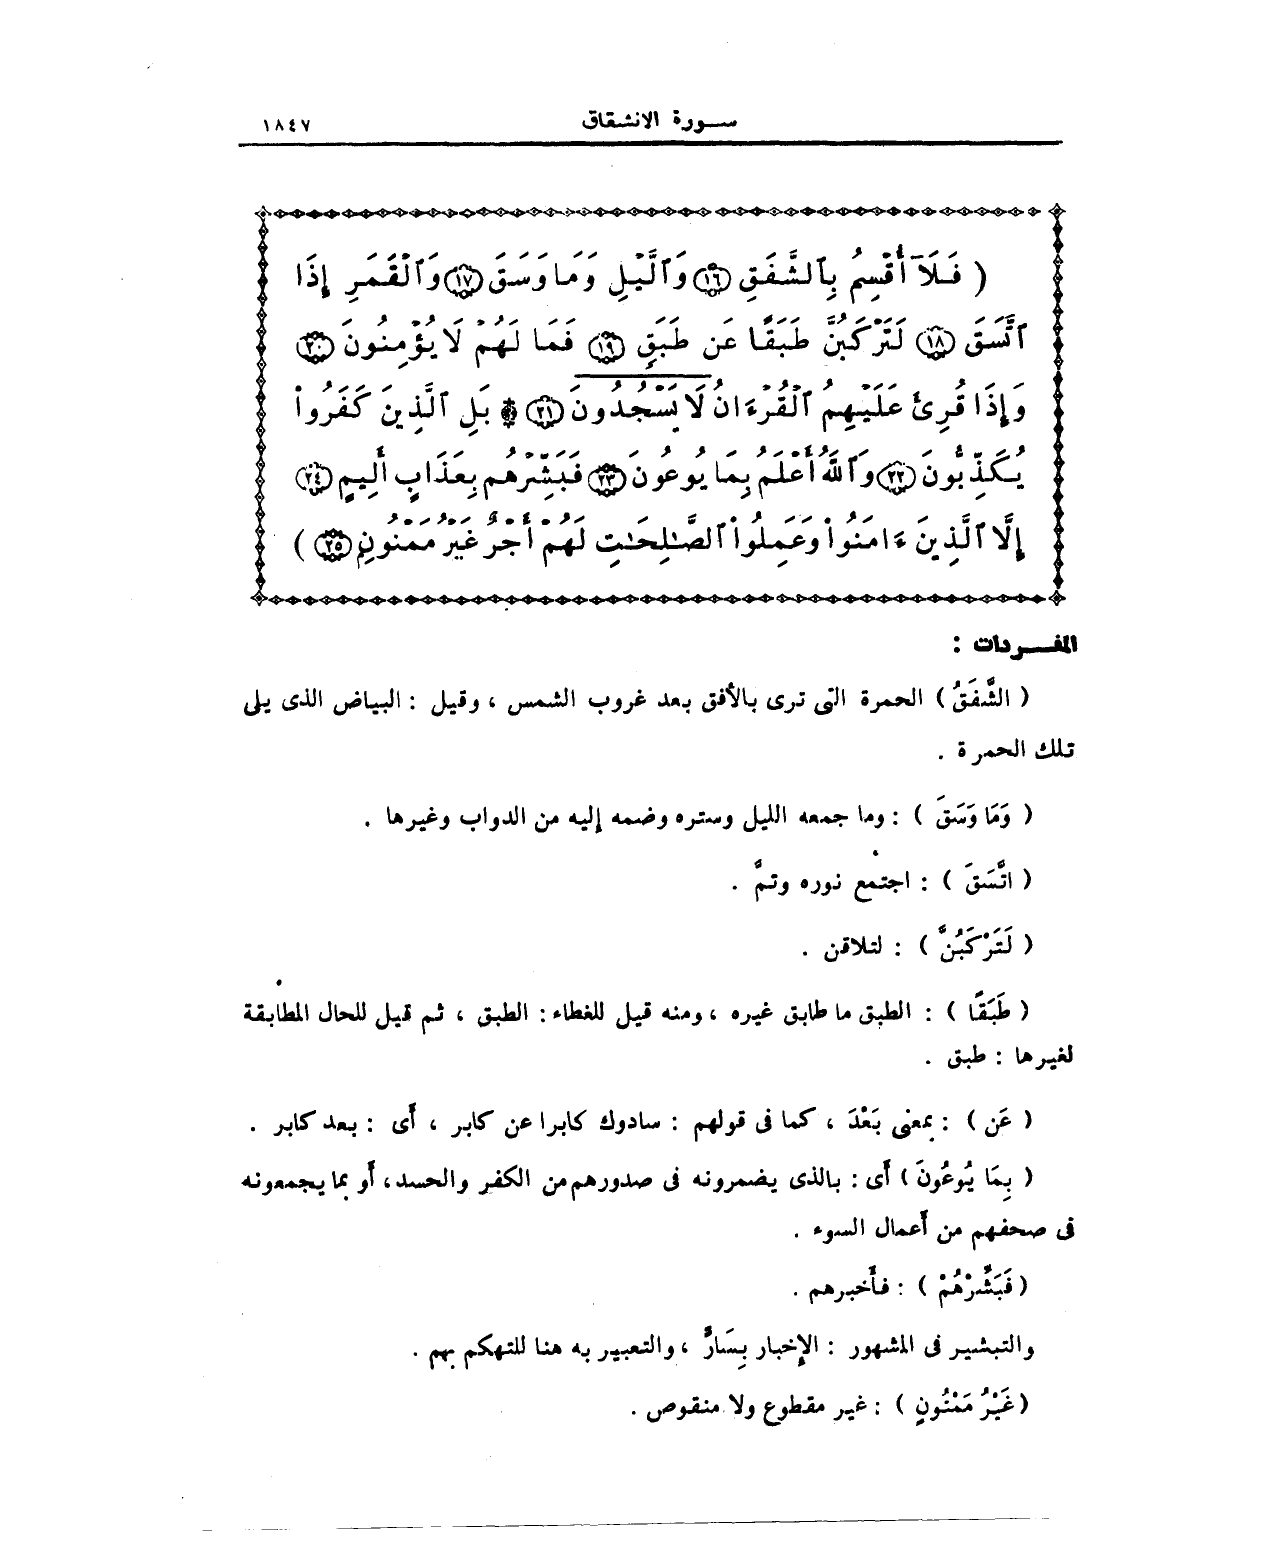 ســورة الانشقاق ١٨٤٧
( فَلَآ أُقْسِمُ بِٱلشَّفَقِ ١٦ وَٱلَّيْلِ وَمَا وَسَقَ ١٧ وَٱلْقَمَرِ إِذَا
ٱتَّسَقَ ١٨ لَتَرْكَبُنَّ طَبَقًا عَن طَبَقٍ ١٩ فَمَا لَهُمْ لَا يُؤْمِنُونَ ٢٠
وَإِذَا قُرِئَ عَلَيْهِمُ ٱلْقُرْءَانُ لَا يَسْجُدُونَ ٢١ ۩ بَلِ ٱلَّذِينَ كَفَرُوا۟
يُكَذِّبُونَ ٢٢ وَٱللَّهُ أَعْلَمُ بِمَا يُوعُونَ ٢٣ فَبَشِّرْهُم بِعَذَابٍ أَلِيمٍ ٢٤
إِلَّا ٱلَّذِينَ ءَامَنُوا۟ وَعَمِلُوا۟ ٱلصَّـٰلِحَـٰتِ لَهُمْ أَجْرٌ غَيْرُ مَمْنُونٍ ٢٥ )
المفـــردات :
( الشَّفَقُ ) الحمرة التى ترى بالأفق بعد غروب الشمس ، وقيل : البياض الذى يلى
تلك الحمرة .
( وَمَا وَسَقَ ) : وما جمعه الليل وستره وضمه إليه من الدواب وغيرها .
( اتَّسَقَ ) : اجتمع نوره وتمَّ .
( لَتَرْكَبُنَّ ) : لتلاقن .
( طَبَقًا ) : الطبق ما طابق غيره ، ومنه قيل للغطاء : الطبق ، ثم قيل للحال المطابقة
لغيرها : طبق .
( عَن ) : بمعنى بَعْدَ ، كما فى قولهم : سادوك كابرا عن كابر ، أى : بعد كابر .
( بِمَا يُوعُونَ ) أى : بالذى يضمرونه فى صدورهم من الكفر والحسد ، أو بما يجمعونه
فى صحفهم من أعمال السوء .
( فَبَشِّرْهُمْ ) : فأخبرهم .
والتبشير فى المشهور : الإخبار بِسَارٍّ ، والتعبير به هنا للتهكم بهم .
( غَيْرُ مَمْنُونٍ ) : غير مقطوع ولا منقوص .